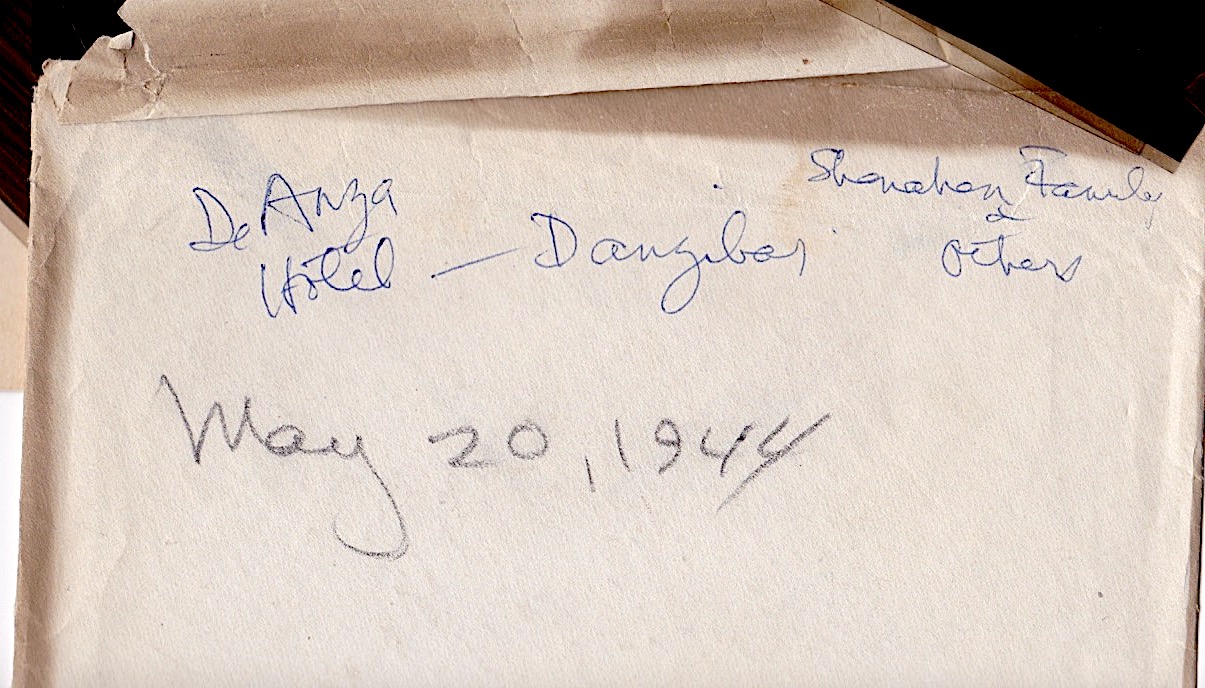 De Anza
Hotel — Danzibar
Shanahan Family
&
others
May 20, 1944